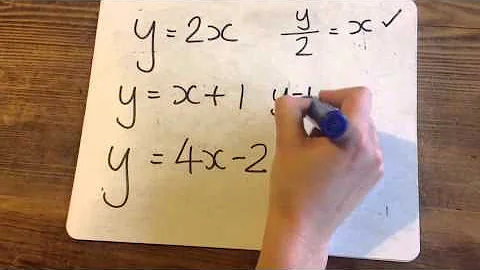 y = 2x    y/2 = x ✓
y = x + 1    y -
y = 4x - 2